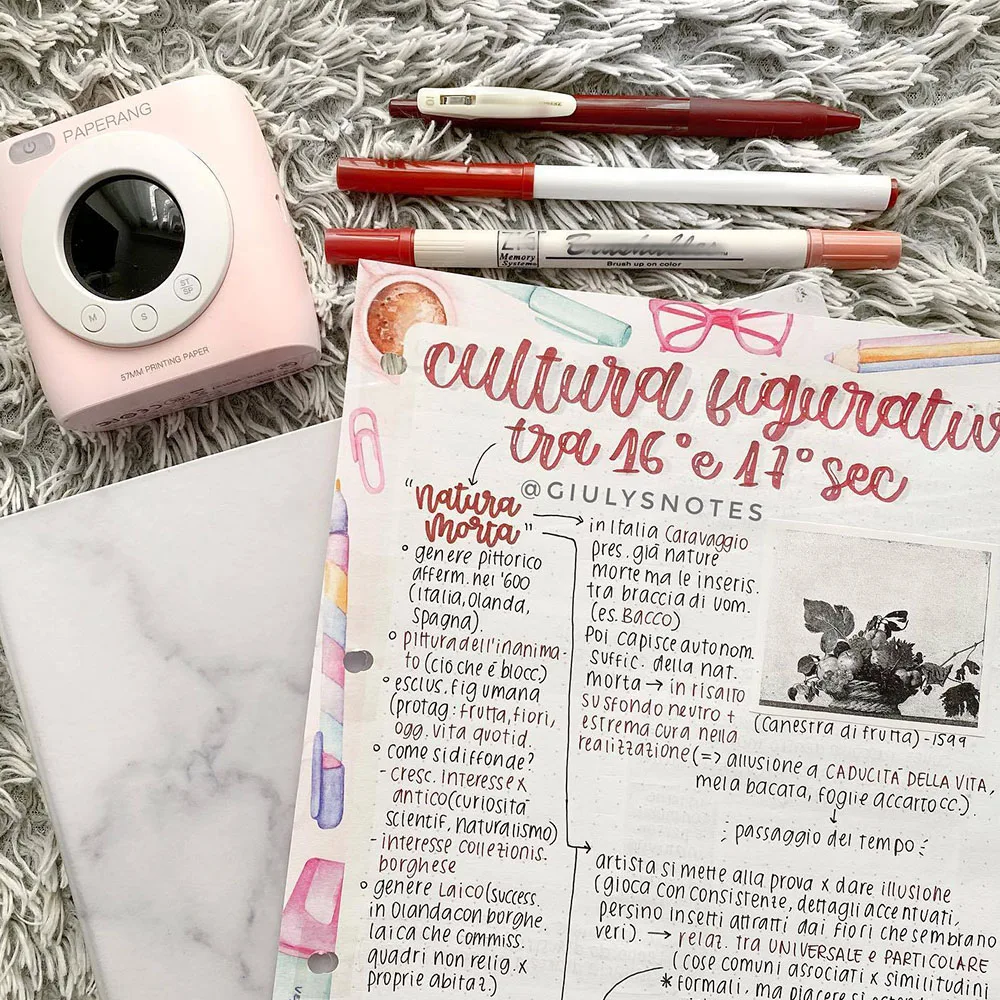 PAPERANG
M
S
ST/SP
57MM PRINTING PAPER
ZIG
Memory
System
Brushables
Brush up on color
cultura figurativ
tra 16° e 17° sec
@GIULYSNOTES
"natura
morta"
° genere pittorico
afferm. nel '600
(Italia, Olanda,
Spagna).
° pittura dell'inanima-
to (ciò che è blocc.)
° esclus. fig umana
(protag: frutta, fiori,
ogg. vita quotid.
° come si diffonde?
- cresc. interesse x
antico (curiosità
scientif, naturalismo)
- interesse collezionis.
borghese
° genere laico (success.
in Olanda con borghe.
laica che commiss.
quadri non relig. x
proprie abitaz.)
in Italia Caravaggio
pres. già nature
morte ma le inseris.
tra braccia di uom.
(es. BACCO)
Poi capisce autonom.
suffic. della nat.
morta → in risalto
su sfondo neutro +
estrema cura nella
realizzazione (=> allusione a CADUCITÀ DELLA VITA,
(canestra di frutta) - 1599
mela bacata, foglie accartocc.).
↓
passaggio del tempo
artista si mette alla prova x dare illusione
(gioca con consistenze, dettagli accentuati,
persino insetti attratti dai fiori che sembrano
veri). → relaz. tra UNIVERSALE e PARTICOLARE
(cose comuni associati x similitudini
* formali, ma piacere